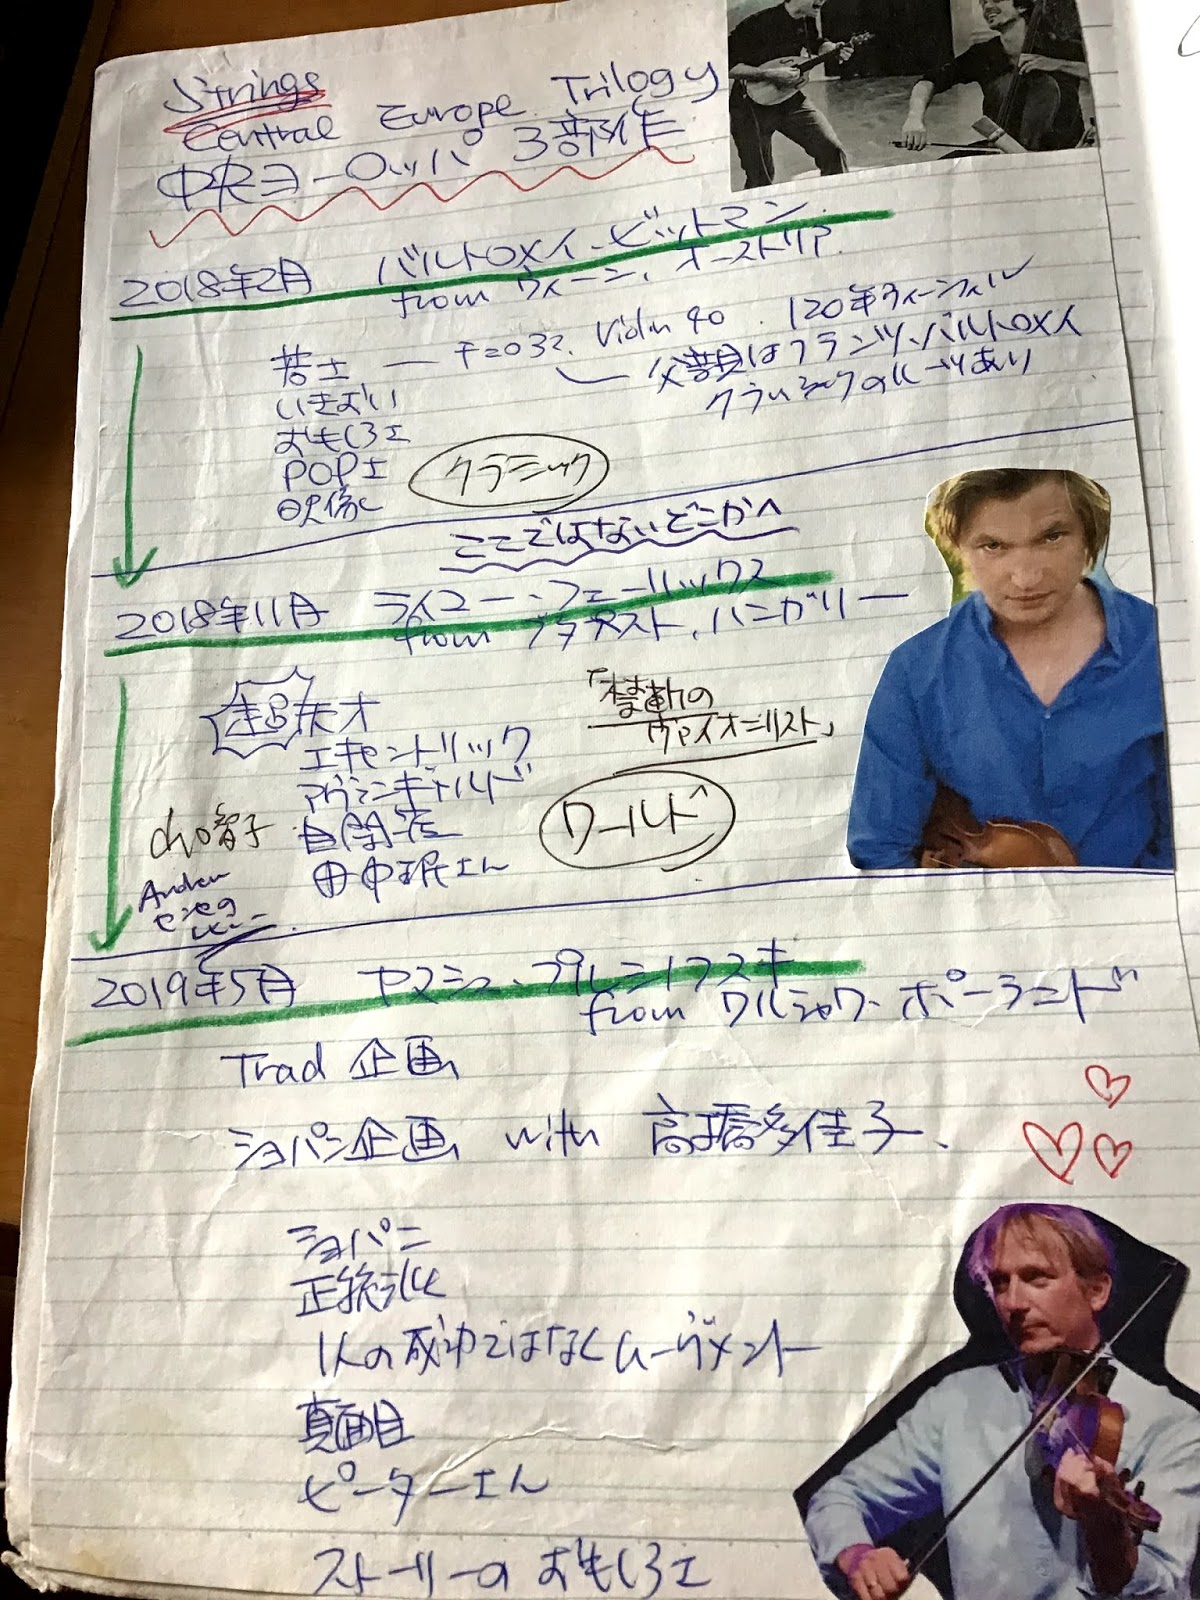 Strings
Central Europe Trilogy
中央ヨーロッパ 3部作
2018年2月 バルトロメイ・ビットマン
from ウィーン, オーストリア
若さ — チェロ32. Violin 40. 120年ウィーンフィル
いきおい
父親はフランツ・バルトロメイ
おもしろさ
クラシックのルーツあり
POPさ
クラシック
映像
ここではないどこかへ
2018年11月 ライコー・フェーリックス
from ブタペスト, ハンガリー
超天才
「禁断の
ヴァイオニリスト」
エキセントリック
アヴァンギャルド
智子
自閉症
ワールド
田中珉さん
2019年5月 ヤヌシュ・プルシノフスキ
from ワルシャワ・ポーランド
Trad 企画
ショパン企画 with 高橋多佳子
ショパン
正統派
1人の成功ではなくムーヴメント
真面目
ピーターさん
ストーリーのおもしろさ